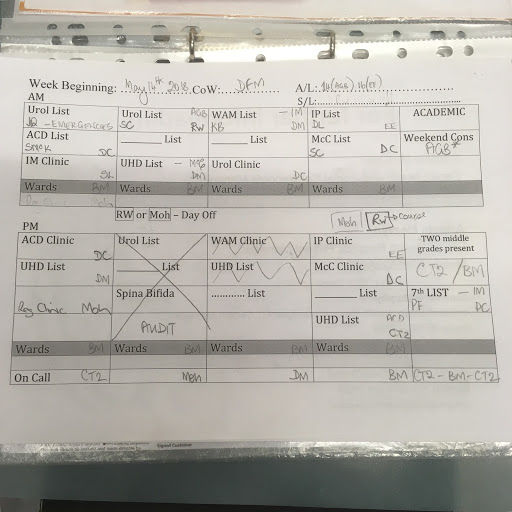 Week Beginning: May 14th 2018 CoW: DFM A/L:
S/L:
AM
Urol List Urol List AGB WAM List - IM IP List ACADEMIC
- EMERGENCIES SC RW KB DM DL EE
ACD List ____ List ____ List McC List Weekend Cons
DC SC DC AGB*
IM Clinic UHD List - Moh Urol Clinic
SL DM DC
Wards BM Wards BM Wards BM Wards BM
RW or Moh – Day Off Moh RW → course
PM
ACD Clinic Urol List WAM Clinic IP Clinic TWO middle
DC EE grades present
UHD List ____ List UHD List McC Clinic CT2 / BM
DM DC
Spina Bifida ............ List ____ List 7th LIST - IM
Reg Clinic Moh PF DC
AUDIT UHD List
CT2
Wards BM Wards BM Wards BM Wards BM
On Call CT2 Moh DM BM CT2 - BM - CT2